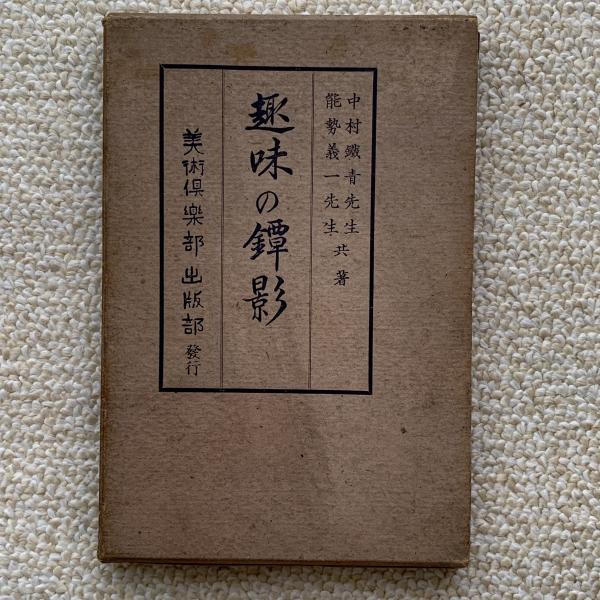 中村鐵青先生
能勢義一先生 共著
趣味の鐔影
美術倶楽部出版部發行